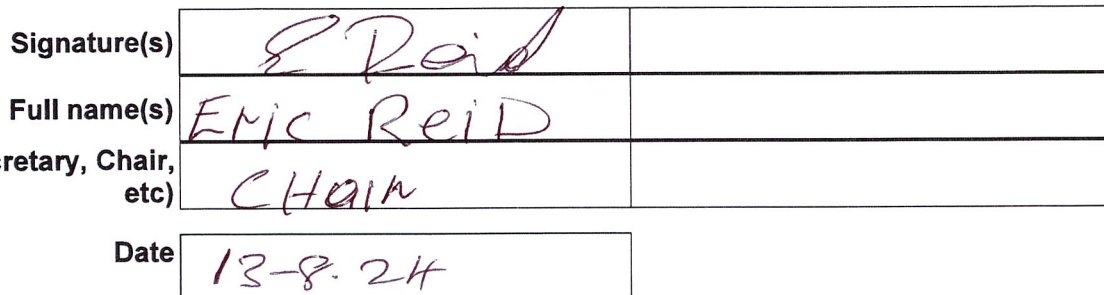 Signature(s) E Reid
Full name(s) Eric ReiD
cretary, Chair,
etc) CHair
Date 13-8.24